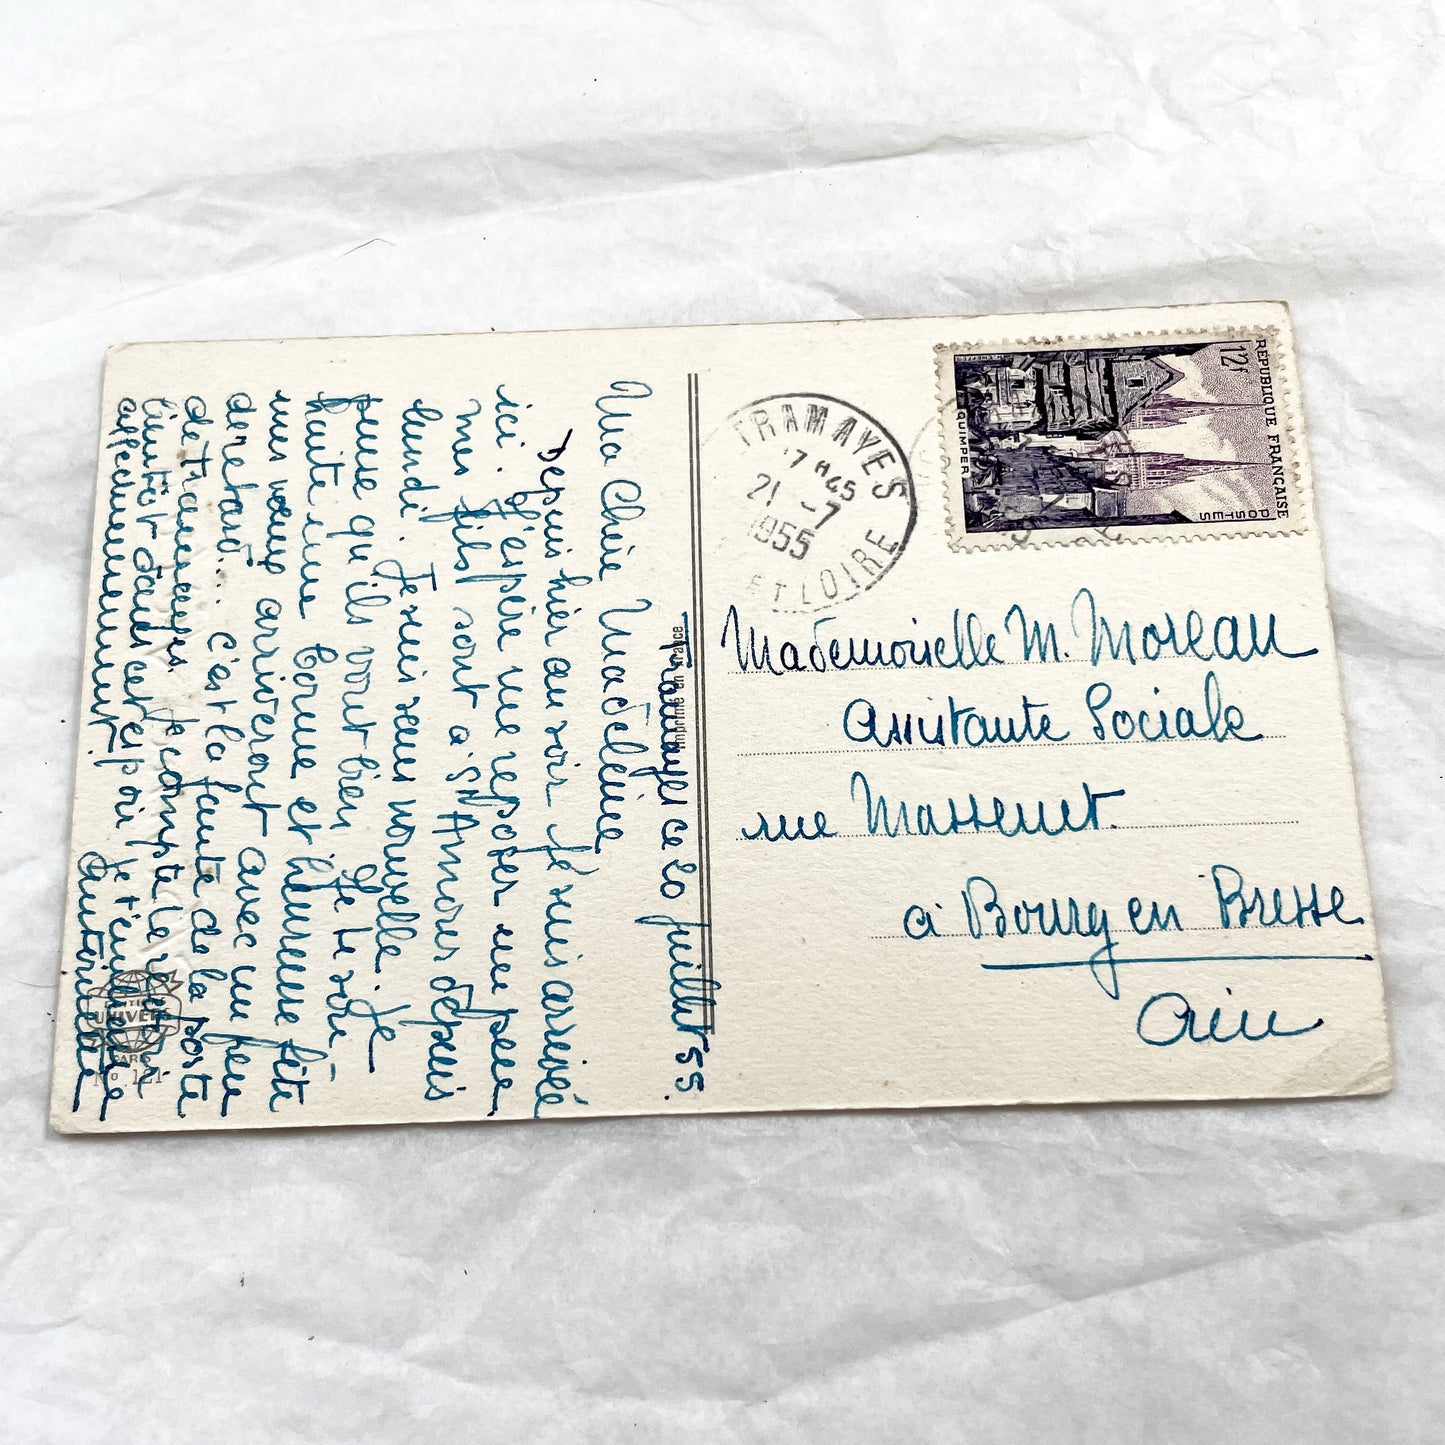 Tramayes ce 20 Juillet 55.
Ma Chère Madeleine
Depuis hier au soir je suis arrivée
ici. J'espère me reposer un peu
mes fils sont à St Amour depuis
lundi. Je suis sans nouvelle. Je
pense qu'ils vont bien Je te sou-
haite une bonne et heureuse fête
mes vœux arriveront avec un peu
de retard... c'est la faute de la poste
de Tramayes. Je compte le
bientôt dans cet espoir je t'embrasse
affectueusement.
Imprimé en France
EDITIONS
UNIVERS
PARIS
No 121
TRAMAYES
17 H 45
21 - 7
1955
ET LOIRE
RÉPUBLIQUE FRANÇAISE
12f
POSTES
QUIMPER
Mademoiselle M. Moreau
Assistante Sociale
rue Massenet.
à Bourg en Bresse
Ain